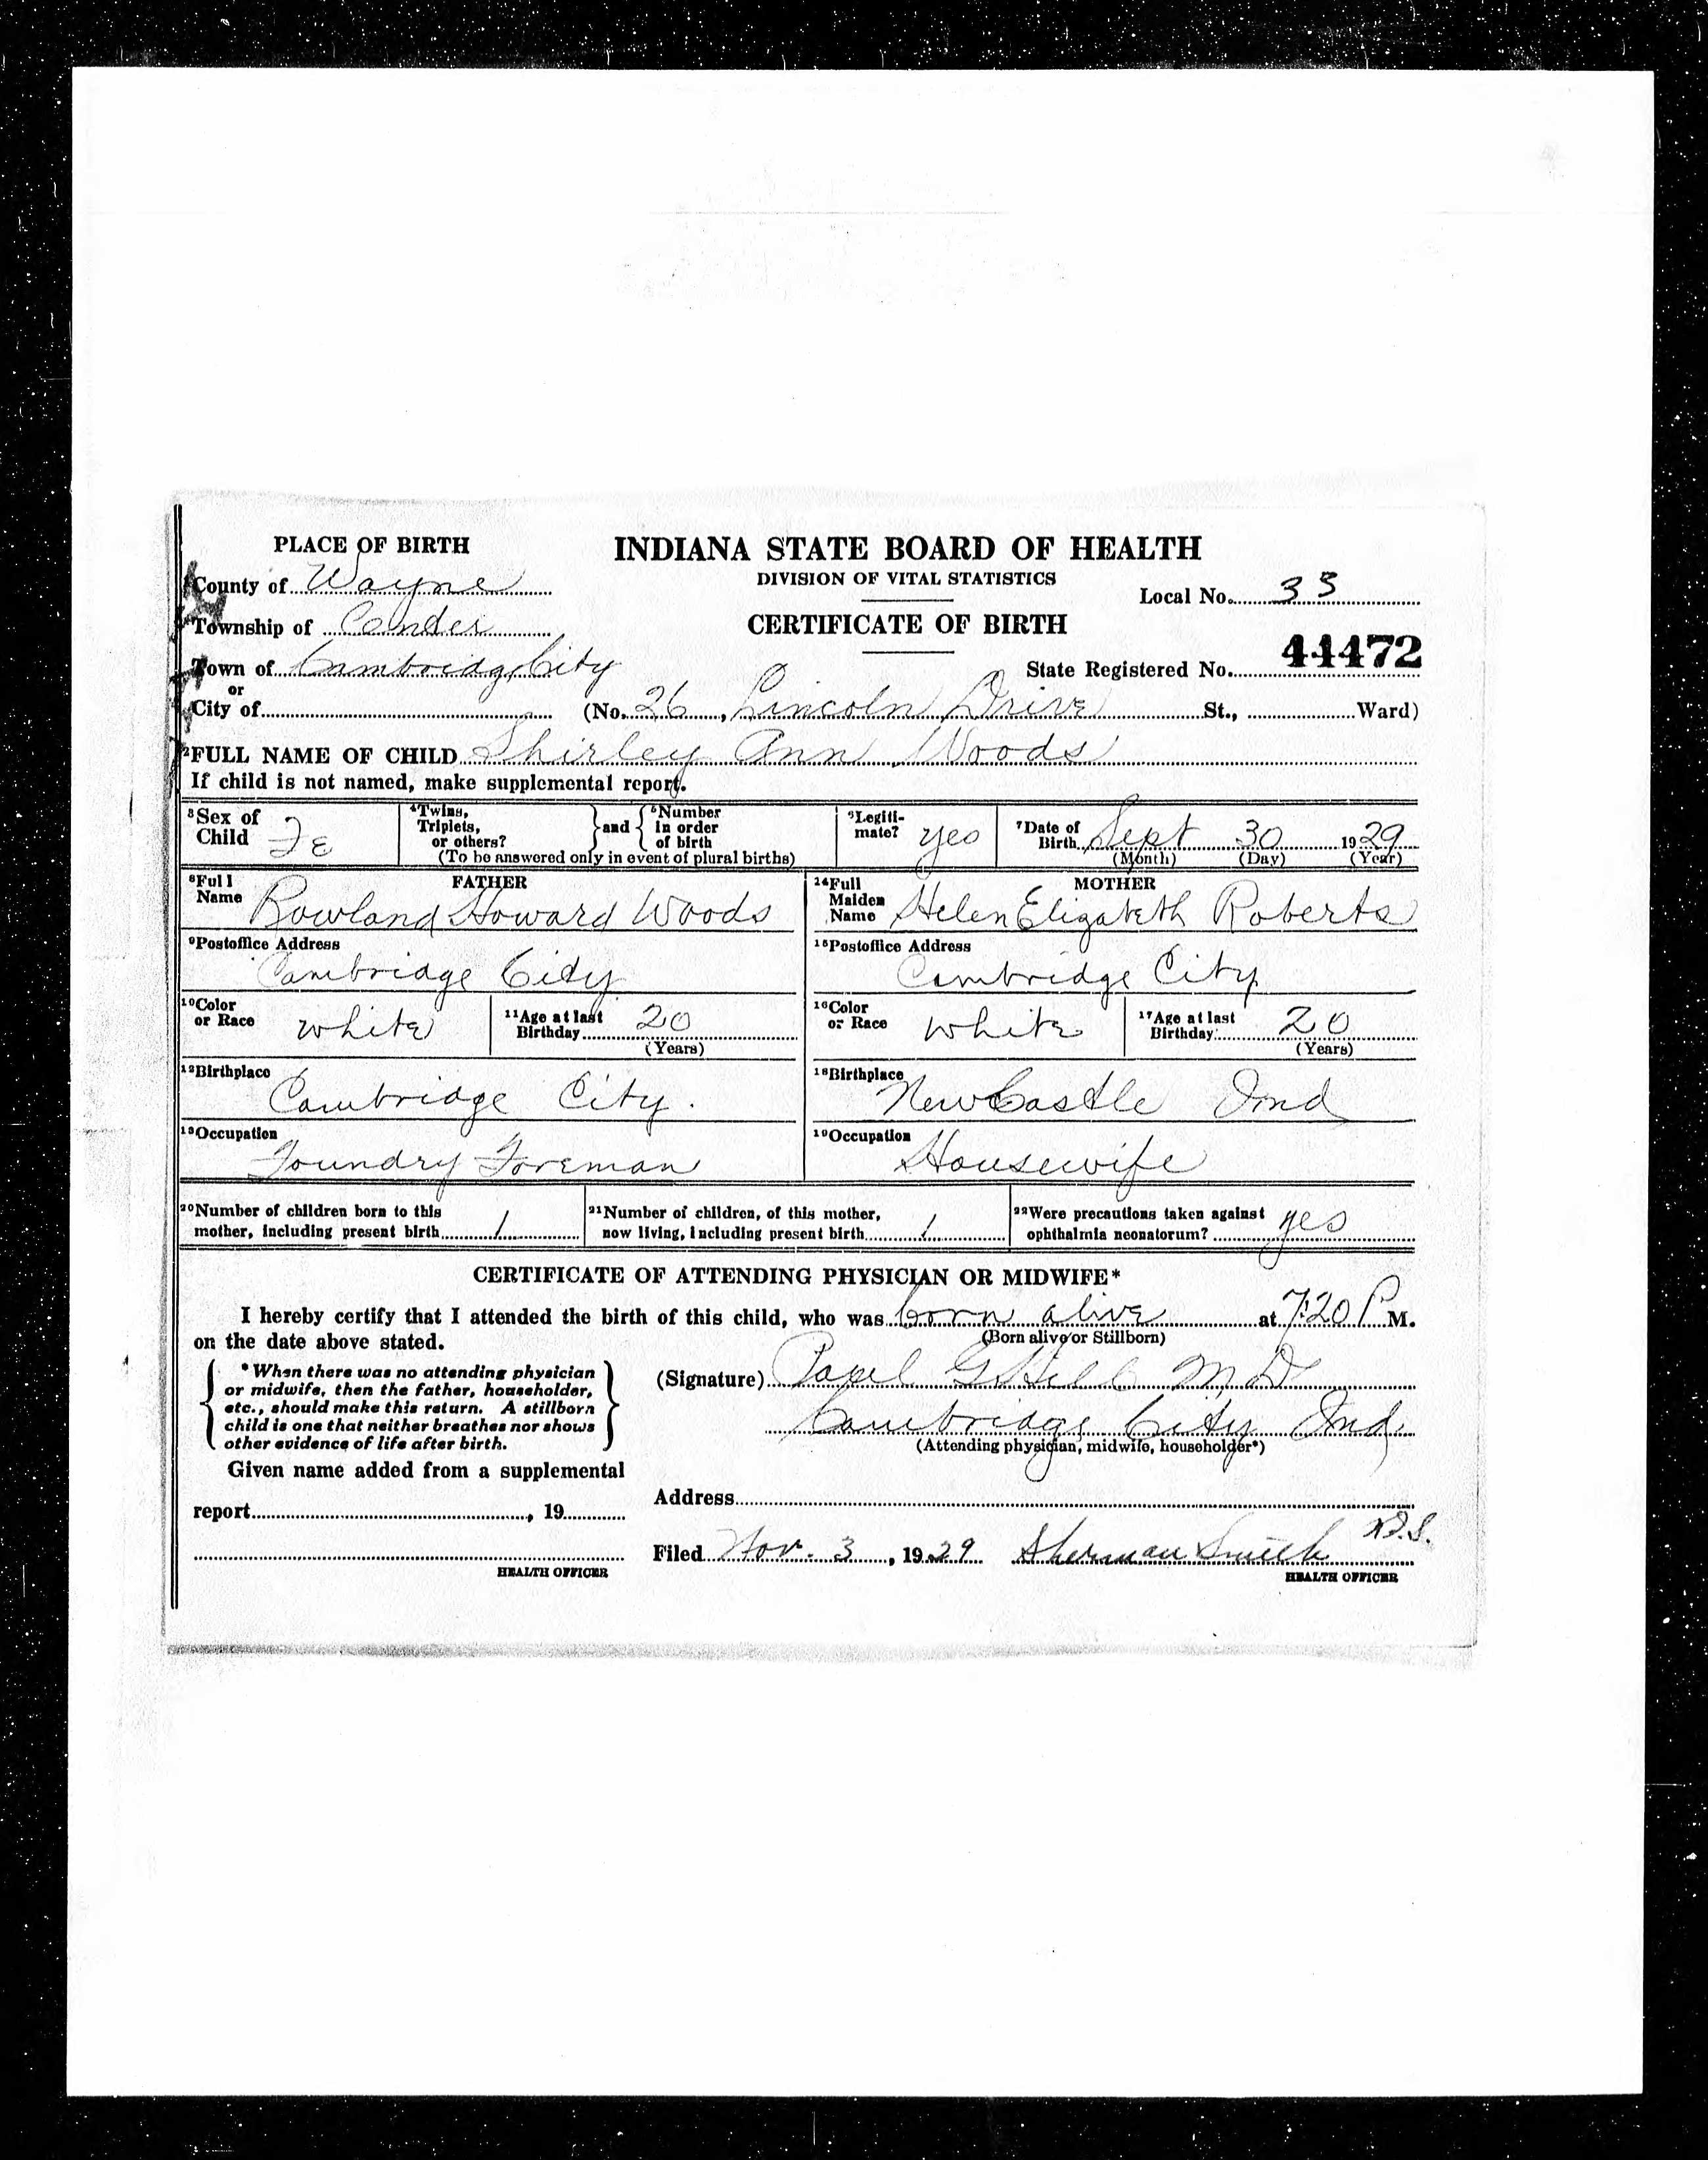 PLACE OF BIRTH
INDIANA STATE BOARD OF HEALTH
DIVISION OF VITAL STATISTICS
CERTIFICATE OF BIRTH
County of Wayne
Township of
Town of Cambridge City
or
City of
Local No. 33
State Registered No. 44472
(No. 26, Lincoln Drive St., Ward)
2FULL NAME OF CHILD Shirley Ann Woods
If child is not named, make supplemental report.
3Sex of Child Fe
4Twins, Triplets, or others? } and { 5Number in order of birth
(To be answered only in event of plural births)
6Legiti-mate? yes
7Date of Birth Sept 30 1929
(Month) (Day) (Year)
FATHER
8Full Name Rowland Howard Woods
9Postoffice Address
Cambridge City
10Color or Race white
11Age at last Birthday 20
(Years)
12Birthplace
Cambridge City.
13Occupation
Foundry Foreman
MOTHER
14Full Maiden Name Helen Elizabeth Roberts
15Postoffice Address
Cambridge City
16Color or Race white
17Age at last Birthday 20
(Years)
18Birthplace
New Castle Ind
19Occupation
Housewife
20Number of children born to this
mother, including present birth 1
21Number of children, of this mother,
now living, including present birth 1
22Were precautions taken against
ophthalmia neonatorum? yes
CERTIFICATE OF ATTENDING PHYSICIAN OR MIDWIFE*
I hereby certify that I attended the birth of this child, who was born alive at 7:20 P M.
on the date above stated.
(Born alive or Stillborn)
*When there was no attending physician
or midwife, then the father, householder,
etc., should make this return. A stillborn
child is one that neither breathes nor shows
other evidence of life after birth.
(Signature) Paul G Hill M D
Cambridge City Ind
(Attending physician, midwife, householder*)
Given name added from a supplemental
report, 19
HEALTH OFFICER
Address
Filed Nov. 3, 1929 Sherman Smith
HEALTH OFFICER